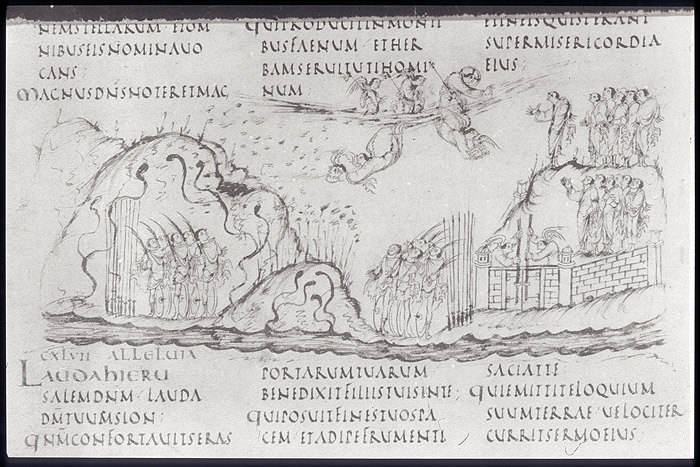 NEMSTELLARUM ETOM
NIBUSEISNOMINAUO
CANS;
MAGNUSDN̄SNOTERETMAG
QUIPRODUCITINMONTI
BUSFAENUM ETHER
BAMSERUITUTIHOMI
NUM;
ETINEISQUISPERANT
SUPERMISERICORDIA
EIUS;
CXLVII ALLELUIA
LAUDAHIERU
SALEMDN̄M LAUDA
DM̄TUUMSION;
QN̄MCONFORTAUITSERAS
PORTARUMTUARUM
BENEDIXITFILIISTUISINTE;
QUIPOSUITFINESTUOSPA
CEM ETADIPEFRUMENTI
SACIATTE
QUIEMITTITELOQUIUM
SUUMTERRAE UELOCITER
CURRITSERMOEIUS;